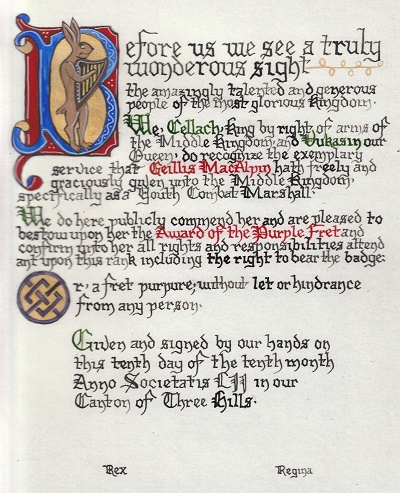 Before us we see a truly
wonderous sight
the amazingly talented and generous
people of the most glorious Kingdom.
We, Cellach, King by right of arms of
the Middle Kingdom and Vukasin our
Queen, do recognize the exemplary
service that Geillis MacAlpin hath freely and
graciously given unto the Middle Kingdom,
specifically as a Youth Combat Marshall.
We do here publicly commend her and are pleased to
bestow upon her the Award of the Purple Fret and
confirm unto her all rights and responsibilities attend
ant upon this rank including the right to bear the badge:
Or, a fret purpure; without let or hindrance
from any person.
Given and signed by our hands on
this tenth day of the tenth month
Anno Societatis LII in our
Canton of Three Hills.
Rex Regina